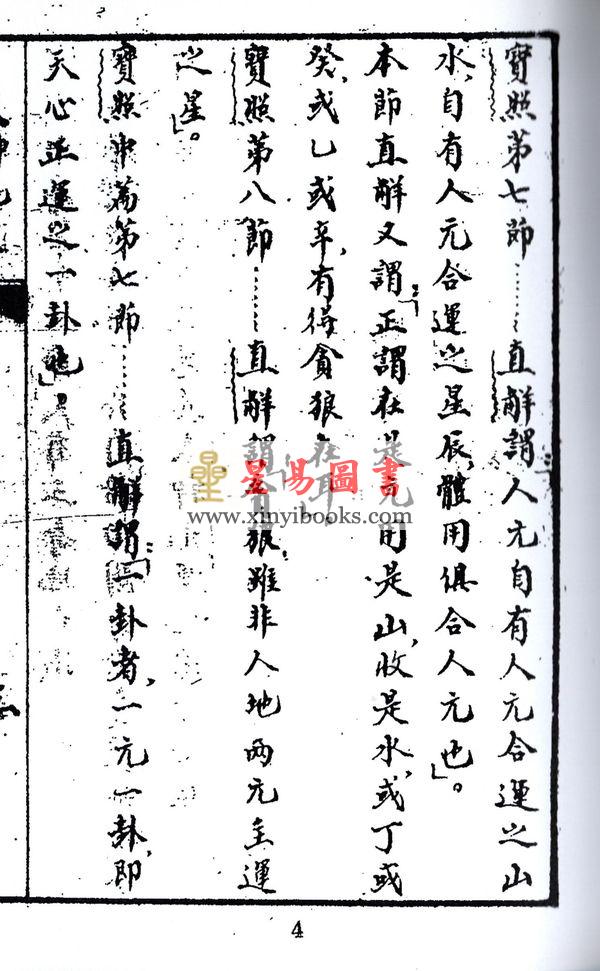 寶照第七節……直解謂「人元自有人元合運之山
水,自有人元合運之星辰,體用俱合人元也」。
本節直解又謂「正謂在用是山,收是水,或丁或
癸,或乙或辛,有得貪狼
寶照第八節……直解狼雖非人地兩元主運
之星」。
寶照中篇第七節……直解謂「一卦者,一元一卦,即
天心正運之一卦也」,
星易圖書
www.xinyibooks.com
4